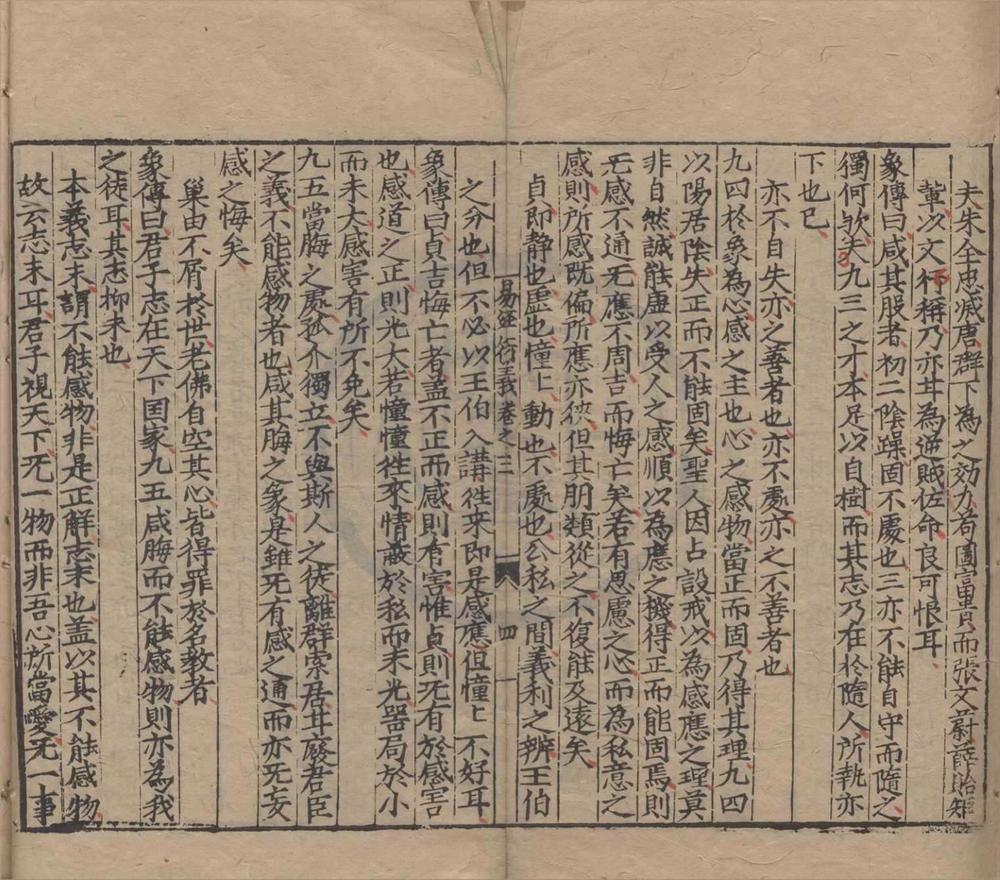 夫朱全忠滅唐群下為之効力者圖富貴而張文蔚薛貽矩
輩以文行稱乃亦甘為逆賊佐命良可恨耳
象傳曰咸其股者初二陰躁固不處也三亦不能自守而隨之
獨何欤夫九三之才本足以自樹而其志乃在於隨人所執亦
下也已
亦不自失亦之善者也亦不處亦之不善者也
九四於象為心感之主也心之感物當正而固乃得其理九四
以陽居陰失正而不能固矣聖人因占設戒以為感應之理莫
非自然誠能虛以受人之感順以為應之機得正而能固焉則
无感不通无應不周吉而悔亡矣若有思慮之心而為私意之
感則所感既偏所應亦狹但其朋類從之不復能及遠矣
貞即静也虛也憧〻動也不處也公私之間義利之辨王伯
易經衍義卷之三
四
之分也但不必以王伯入講徃来即是感應但憧〻不好耳
象傳曰貞吉悔亡者盖不正而感則有害惟貞則无有於感害
也感道之正則光大若憧憧徃來情蔽於私而未光器局於小
而未大感害有所不免矣
九五當脢之處孤介獨立不與斯人之徒離群索居甘廢君臣
之義不能感物者也咸其脢之象是雖无有感之通而亦无妄
感之悔矣
巢由不屑於世老佛自空其心皆得罪於名教者
象傳曰君子志在天下国家九五咸脢而不能感物則亦為我
之徒耳其志抑末也
本義志末謂不能感物非是正解志末也盖以其不能感物
故云志末耳君子視天下无一物而非吾心所當愛无一事